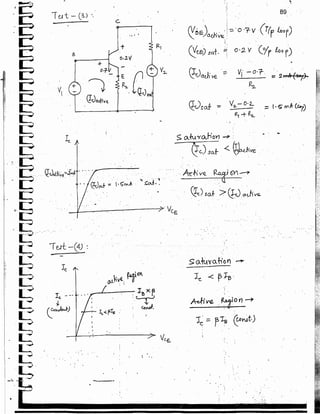 89
Test - (3) :
C
R1
0.2V
B
+
+
0.7V
-
E
V2
Vi
R2
(Ic)active
(Ic)sat
(VBE)active = 0.7V (I/p loop)
(VCE) sat. = 0.2V (O/p loop)
(Ic)active = Vi - 0.7 / R2 = 2mA (say)
(Ic)sat = V2 - 0.2 / R1 + R2 = 1.5mA (say)
Ic
(Ic)active = 2mA
(Ic)sat = 1.5mA "Sat."
VCE
Saturation →
(Ic)sat < (Ic)active
Active Region →
(Ic)sat > (Ic)active
Test - (4) :
Ic
active Region
IB × β
const.
IB
(Constant)
Ic < βIB
VCE
Saturation →
Ic < β IB
Active Region →
Ic = β IB (const.)